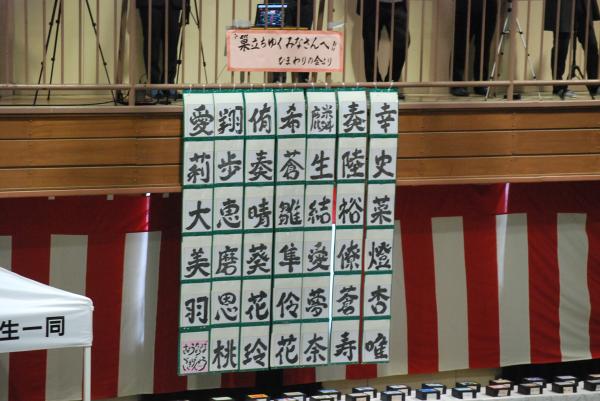 巣立ちゆくみなさんへ!!
ひまわりの会より
愛翔侑希麟奏幸
莉歩奏蒼生陸史
大恵晴雛結裕菜
美磨葵隼愛僚燈
羽思花伶夢蒼杏
桃玲花奈寿唯
生一同